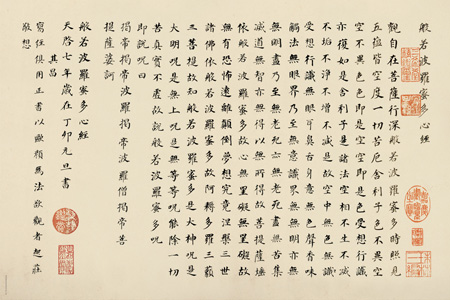 般若波羅蜜多心經
觀自在菩薩行深般若波羅蜜多時照見
五蘊皆空度一切苦厄舍利子色不異空
空不異色色即是空空即是色受想行識
亦復如是舍利子是諸法空相不生不滅
不垢不淨不增不減是故空中無色無
受想行識無眼耳鼻舌身意無色聲香味
觸法無眼界乃至無意識界無無明亦無
無明盡乃至無老死亦無老死盡無苦集
滅道無智亦無得以無所得故菩提薩埵
依般若波羅蜜多故心無罣礙無罣礙故
無有恐怖遠離顛倒夢想究竟涅槃三世
諸佛依般若波羅蜜多故阿耨多羅三藐
三菩提故知般若波羅蜜多是大神呪是
大明呪是無上呪是無等等呪能除一切
苦真實不虛故說般若波羅蜜多呪
即說呪曰
揭帝揭帝波羅揭帝波羅僧揭帝菩
提薩婆訶
般若波羅蜜多心經
天啓七年歲在丁卯元旦書
其昌
寫經俱用正書以歐顏為法欲觀者起莊
敬想